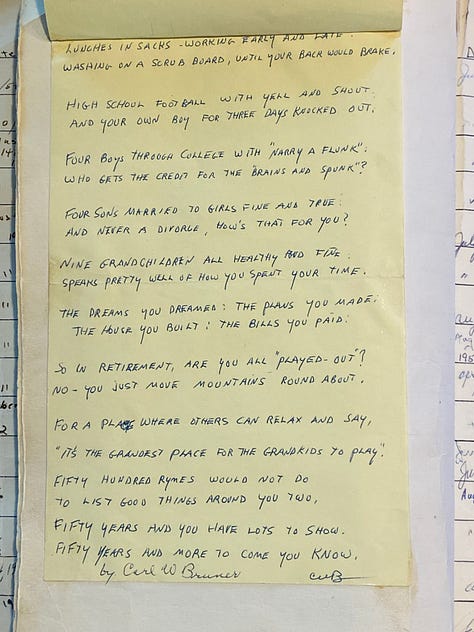 LUNCHES IN SACKS - WORKING EARLY AND LATE.
WASHING ON A SCRUB BOARD, UNTIL YOUR BACK WOULD BRAKE.
HIGH SCHOOL FOOTBALL WITH YELL AND SHOUT
AND YOUR OWN BOY FOR THREE DAYS KNOCKED OUT.
FOUR BOYS THROUGH COLLEGE WITH "NARRY A FLUNK":
WHO GETS THE CREDIT FOR THE "BRAINS AND SPUNK"?
FOUR SONS MARRIED TO GIRLS FINE AND TRUE:
AND NEVER A DIVORCE, HOW'S THAT FOR YOU?
NINE GRANDCHILDREN ALL HEALTHY AND FINE
SPEAKS PRETTY WELL OF HOW YOU SPENT YOUR TIME.
THE DREAMS YOU DREAMED: THE PLANS YOU MADE:
THE HOUSE YOU BUILT: THE BILLS YOU PAID:
SO IN RETIREMENT, ARE YOU ALL "PLAYED-OUT"?
NO - YOU JUST MOVE MOUNTAINS ROUND ABOUT.
FOR A PLACE WHERE OTHERS CAN RELAX AND SAY,
"IT'S THE GRANDEST PLACE FOR THE GRANDKIDS TO PLAY".
FIFTY HUNDRED RYMES WOULD NOT DO
TO LIST GOOD THINGS AROUND YOU TWO,
FIFTY YEARS AND YOU HAVE LOTS TO SHOW.
FIFTY YEARS AND MORE TO COME YOU KNOW.
by Carl W Bruner CWB